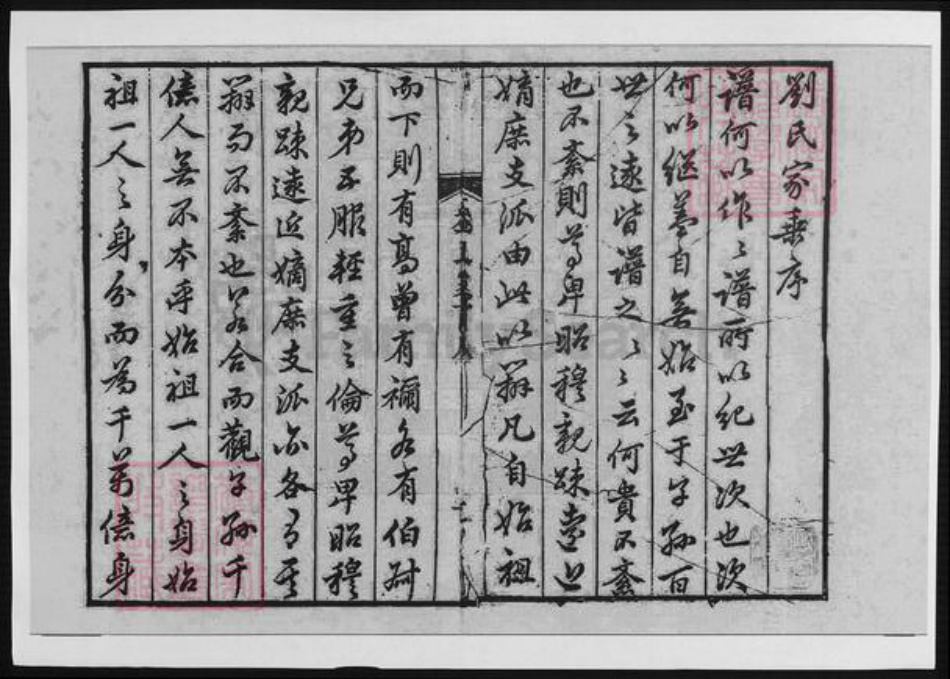 劉氏家乘序
譜何以作〻譜所以紀世次也次
何以継蓋自無始至于子孫百
世之遠皆譜之〻〻云何貴不紊
也不紊則尊卑昭穆親踈遠近
嫡庶支派由此以辨凡自始祖
而下則有高曾有禰各有伯叔
兄弟五服輕重之倫尊卑昭穆
親踈遠近嫡庶支派亦各有其
而不紊也若合而觀子孫千
億人無不本乎始祖一人之身始
祖一人之身分而為千萬億身